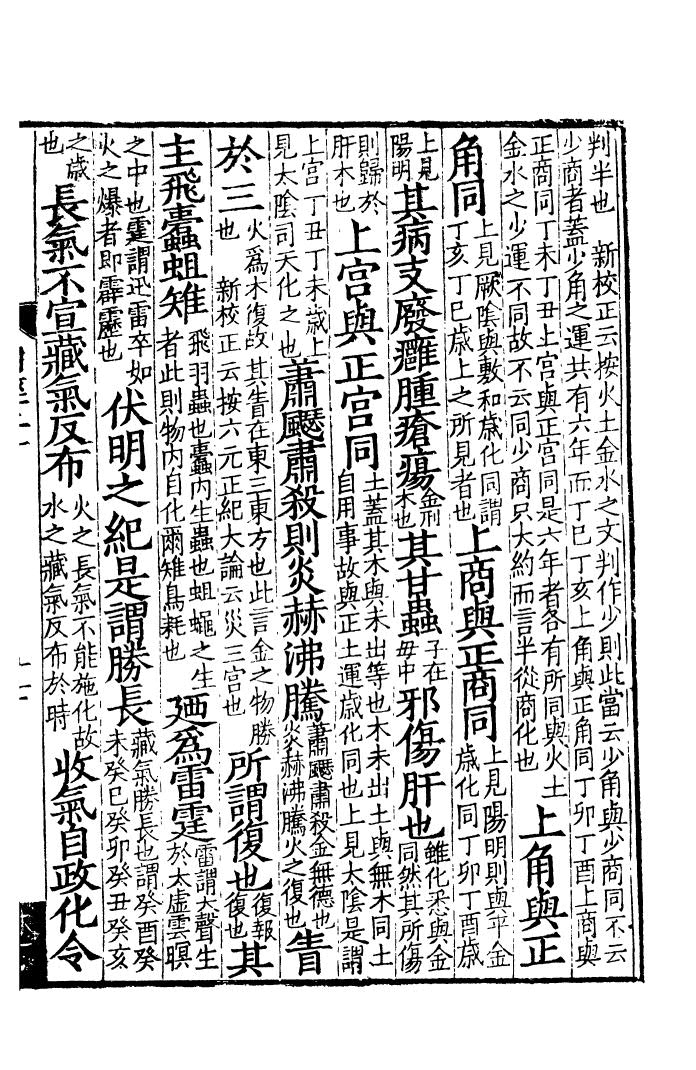 判半也　新校正云按火土金水之文判作少則此當云少角與少商同不云
少商者蓋少角之運共有六年而丁巳丁亥上角與正角同丁卯丁酉上商與
正商同丁未丁丑上宮與正宮同是六年者各有所同與火土
金水之少運不同故不云同少商只大約而言半從商化也
上角與正
角同
上見厥陰與敷和歲化同謂
丁亥丁巳歲上之所見者也
上商與正商同
上見陽明則與平金
歲化同丁卯丁酉歲
上見
陽明
其病支廢癰腫瘡瘍
金刑
木也
其甘蟲
子在
毋中
邪傷肝也
雖化悉與金
同然其所傷
則歸於
肝木也
上宮與正宮同
土蓋其木與未出等也木未出土與無木同土
自用事故與正土運歲化同也上見太陰是謂
上宮丁丑丁未歲上
見太陰司天化之也
蕭飋肅殺則炎赫沸騰
蕭飋肅殺金無德也
炎赫沸騰火之復也
眚
於三
火爲木復故其眚在東三東方也此言金之物勝
也　新校正云按六元正紀大論云災三宮也
所謂復也
復報
復也
其
主飛蠹蛆雉
飛羽蟲也蠹內生蟲也蛆蠅之生
者此則物內自化爾雉鳥耗也
廼爲雷霆
雷謂大聲生
於太虛雲暝
之中也霆謂迅雷卒如
火之爆者即霹靂也
伏明之紀是謂勝長
藏氣勝長也謂癸酉癸
未癸巳癸卯癸丑癸亥
之歲
也
長氣不宣藏氣反布
火之長氣不能施化故
水之藏氣反布於時
收氣自政化令